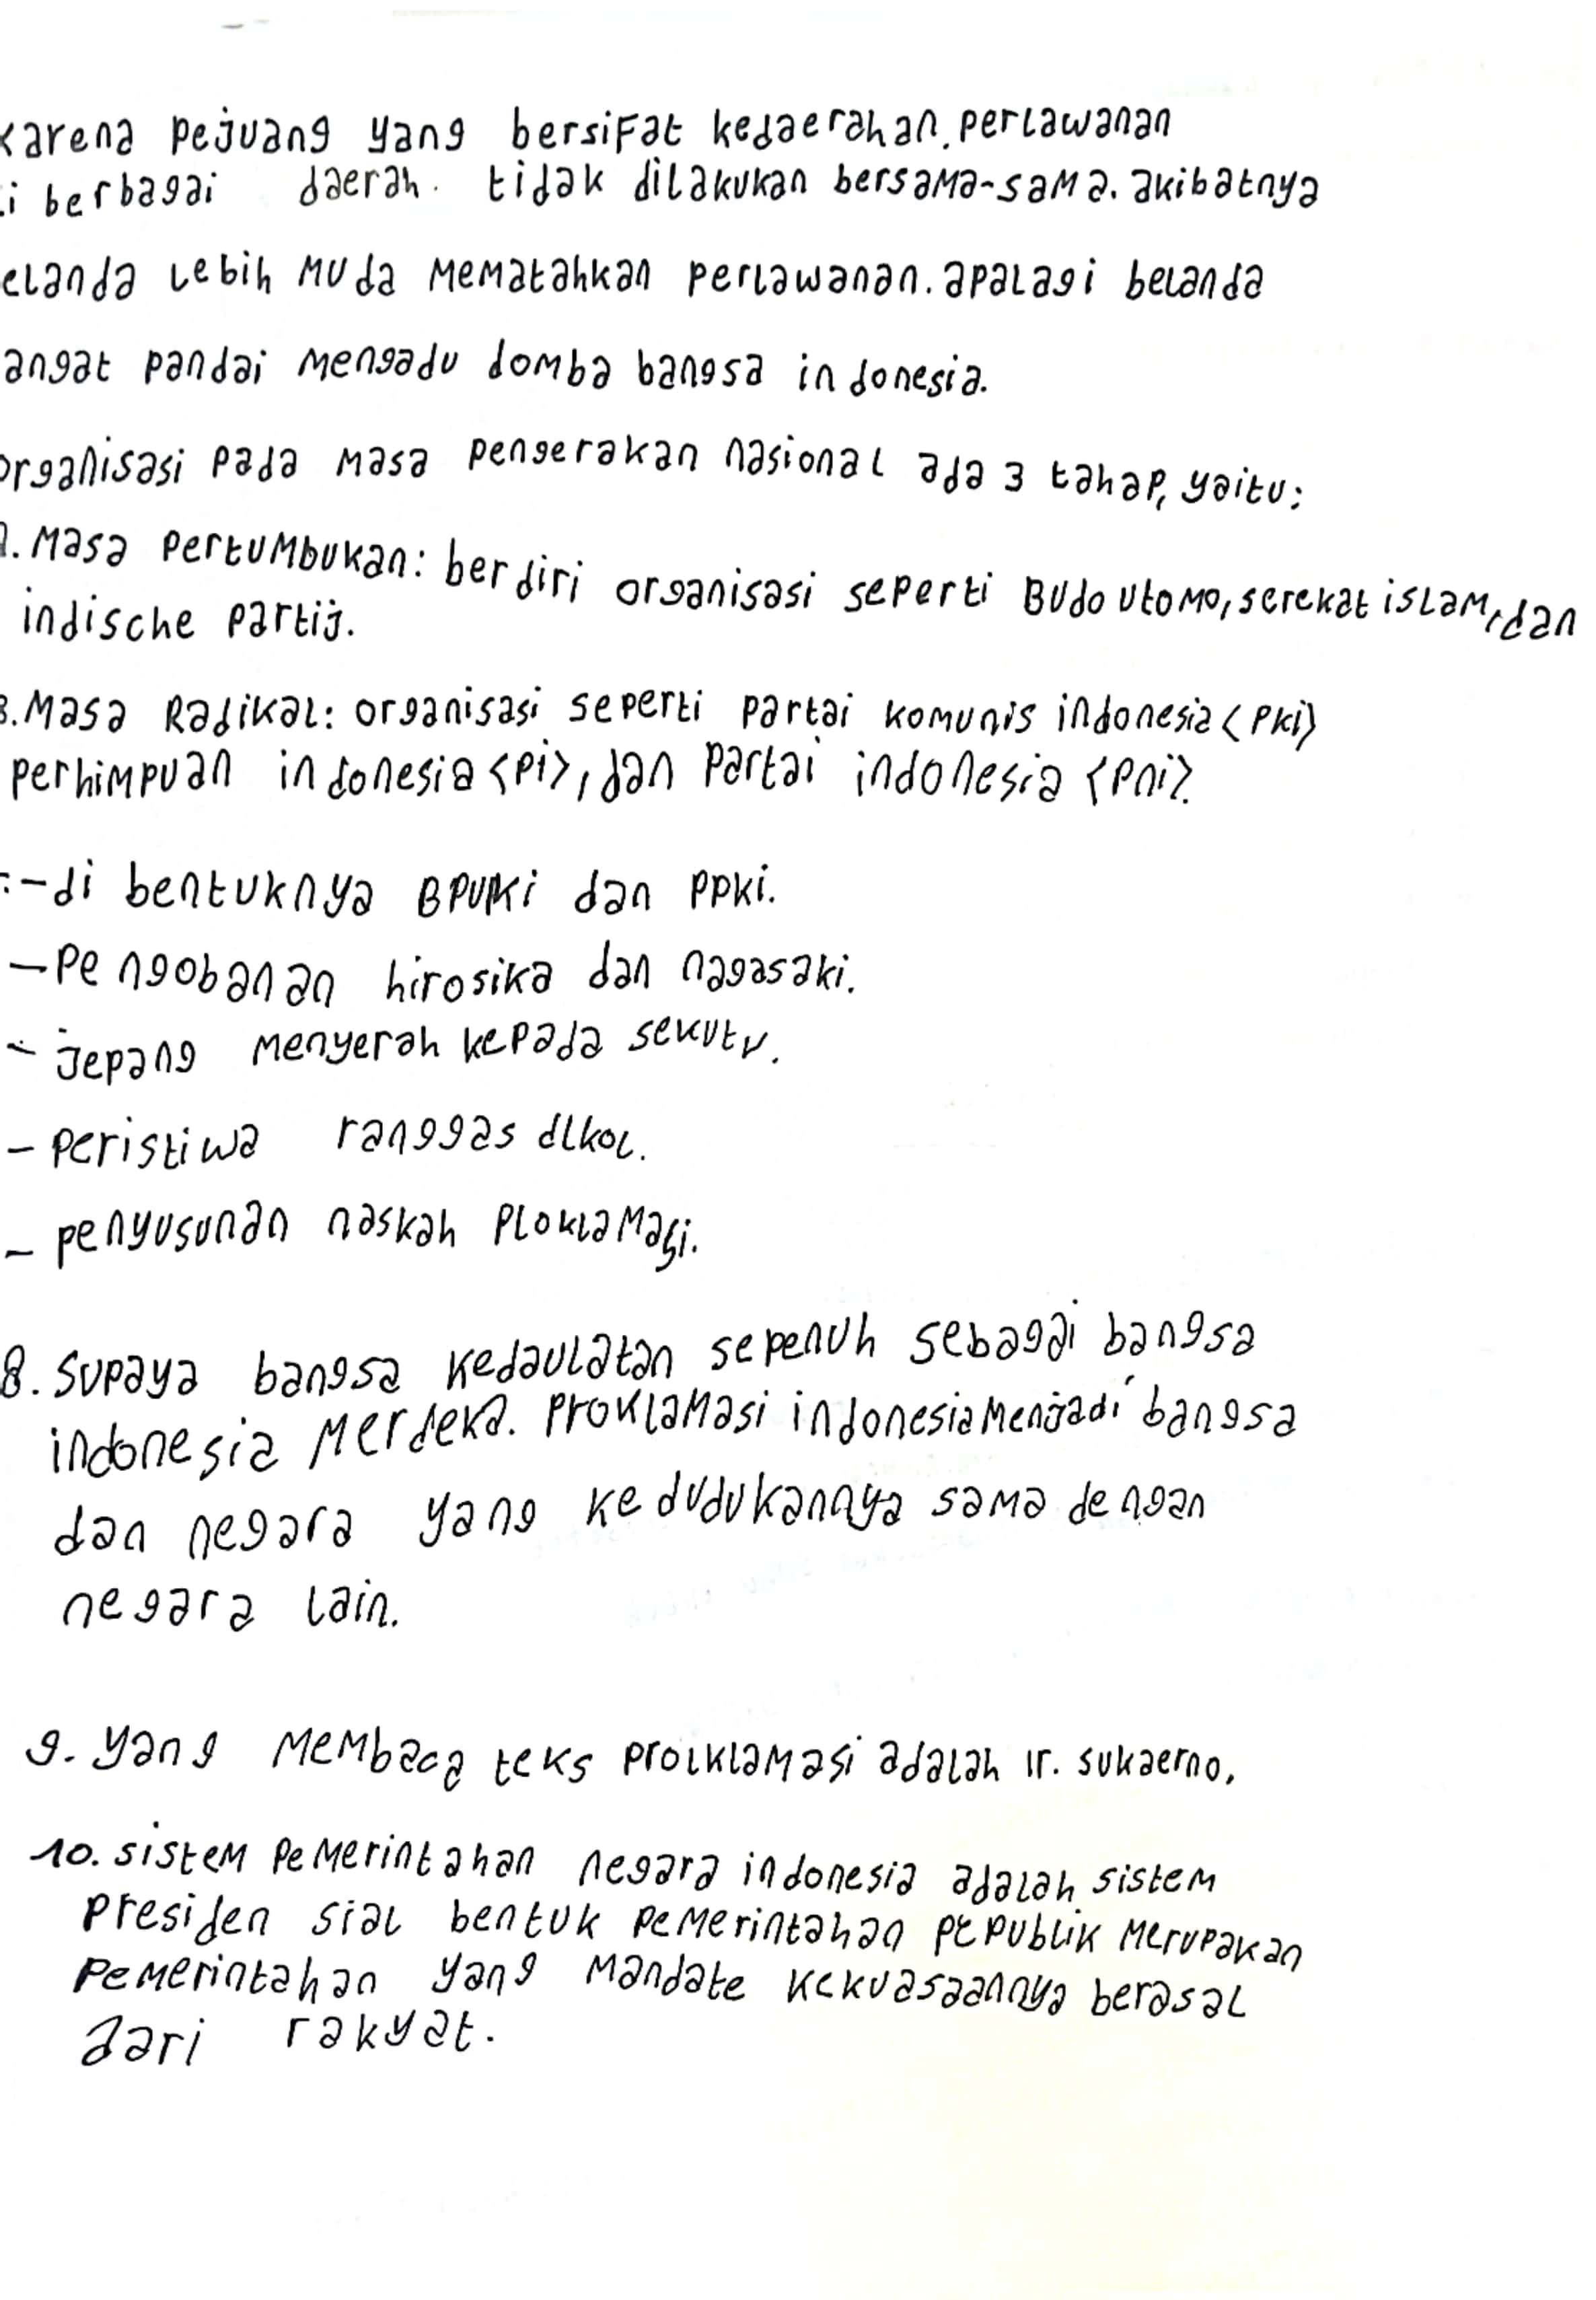 karena pejuang yang bersifat kedaerahan. perlawanan
i berbagai daerah. tidak dilakukan bersama-sama. akibatnya
elanda lebih muda mematahkan perlawanan. apalagi belanda
angat pandai mengadu domba bangsa indonesia.
organisasi pada masa pengerakan nasional ada 3 tahap, yaitu:
A. Masa pertumbukan: berdiri organisasi seperti Budo utomo, serekat islam, dan
indische partij.
B. Masa Radikal: organisasi seperti partai komunis indonesia <pki>
perhimpuan indonesia <pi>, dan partai indonesia <pni>.
:-di bentuknya BPUPKi dan ppki.
-pengobanan hirosika dan nagasaki.
- jepang menyerah kepada sekutu.
- peristiwa ranggas dlkol.
- penyusunan naskah ploklamasi.
8. Supaya bangsa kedaulatan sepenuh sebagai bangsa
indonesia Merdeka. proklamasi indonesia menjadi bangsa
dan negara yang kedudukannya sama dengan
negara lain.
9. yang membaca teks proiklamasi adalah ir. sukaerno,
10. sistem pemerintahan negara indonesia adalah sistem
presiden sial bentuk pemerintahan republik merupakan
pemerintahan yang mandate kekuasaannya berasal
dari rakyat.